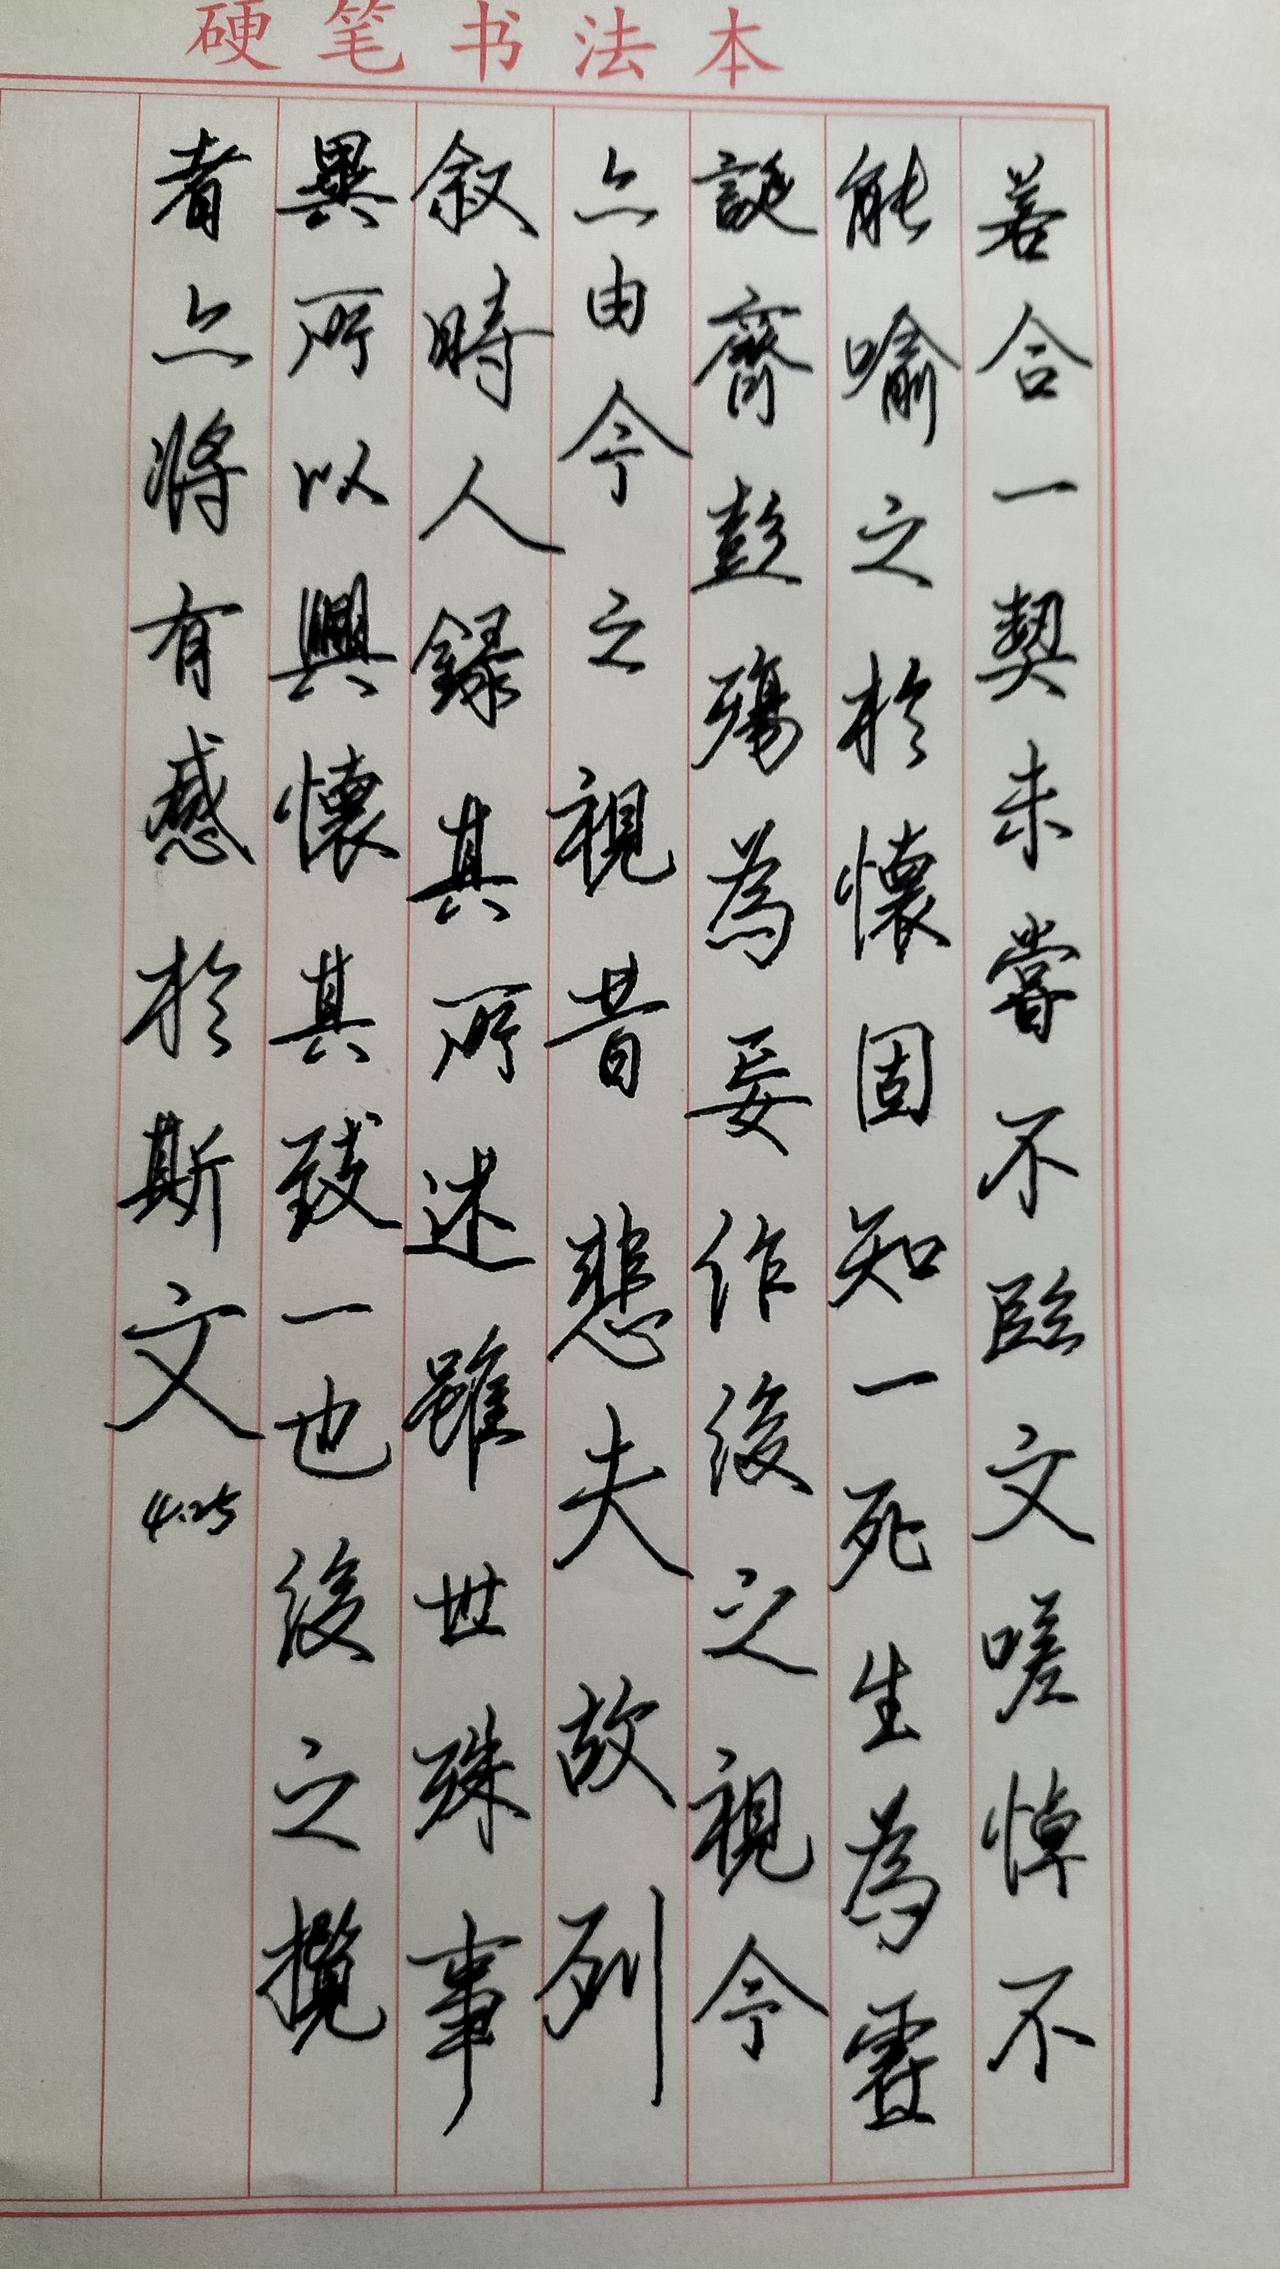 硬笔书法本
若合一契未嘗不臨文嗟悼不
能喻之於懷固知一死生為虛
誕齊彭殤為妄作後之視今
亦由今之視昔悲夫故列
叙時人錄其所述雖世殊事
異所以興懷其致一也後之攬
者亦將有感於斯文
4.25